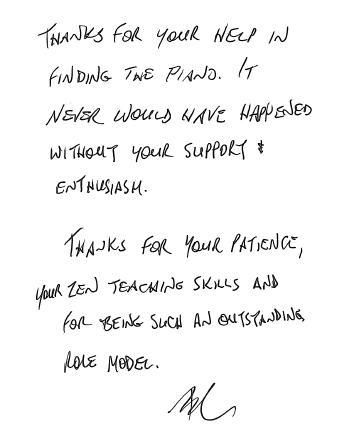 THANKS FOR YOUR HELP IN
FINDING THE PIANO. IT
NEVER WOULD HAVE HAPPENED
WITHOUT YOUR SUPPORT &
ENTHUSIASM.
THANKS FOR YOUR PATIENCE,
YOUR ZEN TEACHING SKILLS AND
FOR BEING SUCH AN OUTSTANDING
ROLE MODEL.